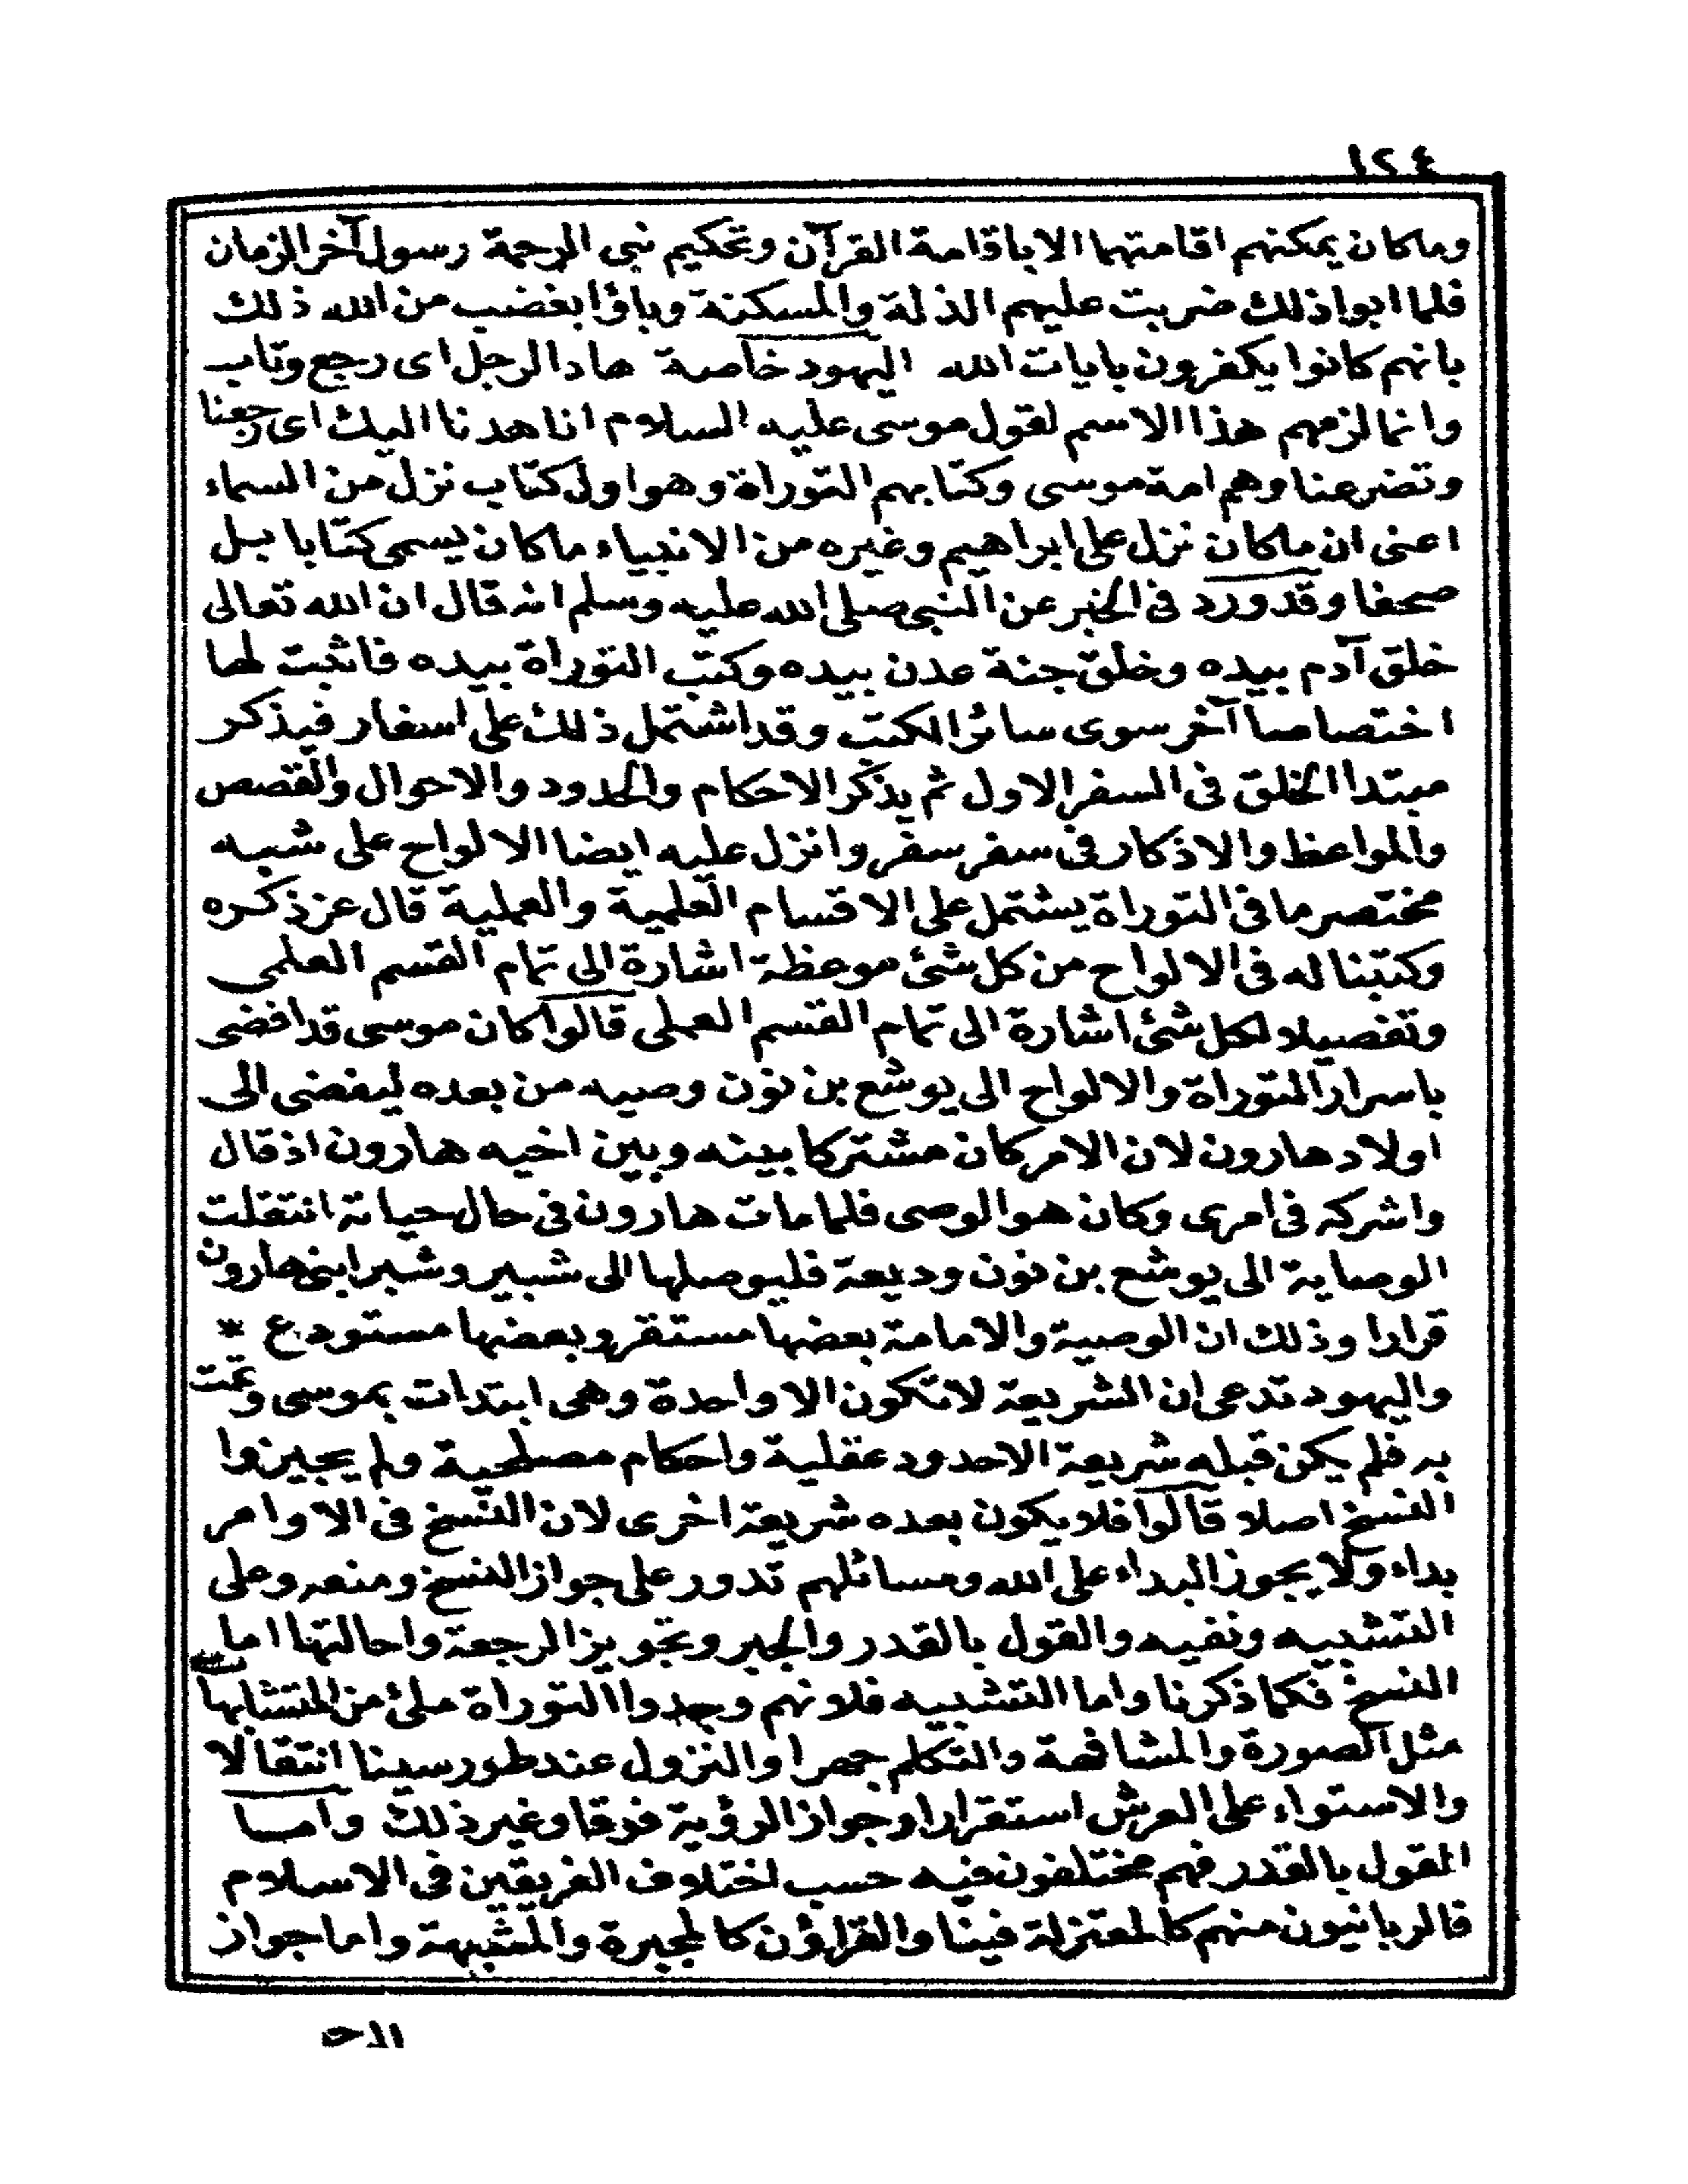 ١٢٤
وماكان يمكنهم اقامتهما الا باقامة القرآن وتحكيم نبى الرحمة رسول آخر الزمان
فلما ابوا ذلك ضربت عليهم الذلة والمسكنة وباؤا بغضب من الله ذلك
بانهم كانوا يكفرون بايات الله اليهود خاصة هاد الرجل اى رجع وتاب
وانما لزمهم هذا الاسم لقول موسى عليه السلام انا هدنا اليك اى رجعنا
وتضرعنا وهم امة موسى وكتابهم التوراة وهو اول كتاب نزل من السماء
اعنى ان ماكان نزل على ابراهيم وغيره من الانبياء ماكان يسمى كتابا بل
صحفا وقد ورد فى الخبر عن النبى صلى الله عليه وسلم انه قال ان الله تعالى
خلق آدم بيده وخلق جنة عدن بيده وكتب التوراة بيده فاثبت لها
اختصاصا آخر سوى سائر الكتب وقد اشتمل ذلك على اسفار فيذكر
مبتدا الخلق فى السفر الاول ثم يذكر الاحكام والحدود والاحوال والقصص
والمواعظ والاذكار فى سفر سفر وانزل عليه ايضا الالواح على شبه
مختصر ما فى التوراة يشتمل على الاقسام العلمية والعملية قال عز ذكره
وكتبنا له فى الالواح من كل شئ موعظة اشارة الى تمام القسم العلمى
وتفصيلا لكل شئ اشارة الى تمام القسم العملى قالوا كان موسى قد افضى
باسرار التوراة والالواح الى يوشع بن نون وصيه من بعده ليفضى الى
اولاد هارون لان الامر كان مشتركا بينه وبين اخيه هارون اذ قال
واشركه فى امرى وكان هو الوصى فلما مات هارون فى حال حياته انتقلت
الوصاية الى يوشع بن نون وديعة فليوصلها الى شبير وشبر ابنى هارون
قرارا وذلك ان الوصية والامامة بعضها مستقر وبعضها مستودع *
واليهود تدعى ان الشريعة لاتكون الا واحدة وهى ابتدات بموسى وتمت
به فلم يكن قبله شريعة الا حدود عقلية واحكام مصلحية ولم يجيزوا
النسخ اصلا قالوا فلا يكون بعده شريعة اخرى لان النسخ فى الاوامر
بداء ولا يجوز البداء على الله ومسائلهم تدور على جواز النسخ ومنعه وعلى
التشبيه ونفيه والقول بالقدر والجبر وتجويز الرجعة واحالتها اما
النسخ فكما ذكرنا واما التشبيه فلانهم وجدوا التوراة ملئ من المتشابهات
مثل الصورة والمشافهة والتكلم جهرا والنزول عند طور سينا انتقالا
والاستواء على العرش استقرارا وجواز الرؤية فوقا وغير ذلك واما
القول بالقدر فهم مختلفون فيه حسب اختلاف الفريقين فى الاسلام
فالربانيون منهم كالمعتزلة فينا والقراؤن كالمجبرة والمشبهة واما جواز